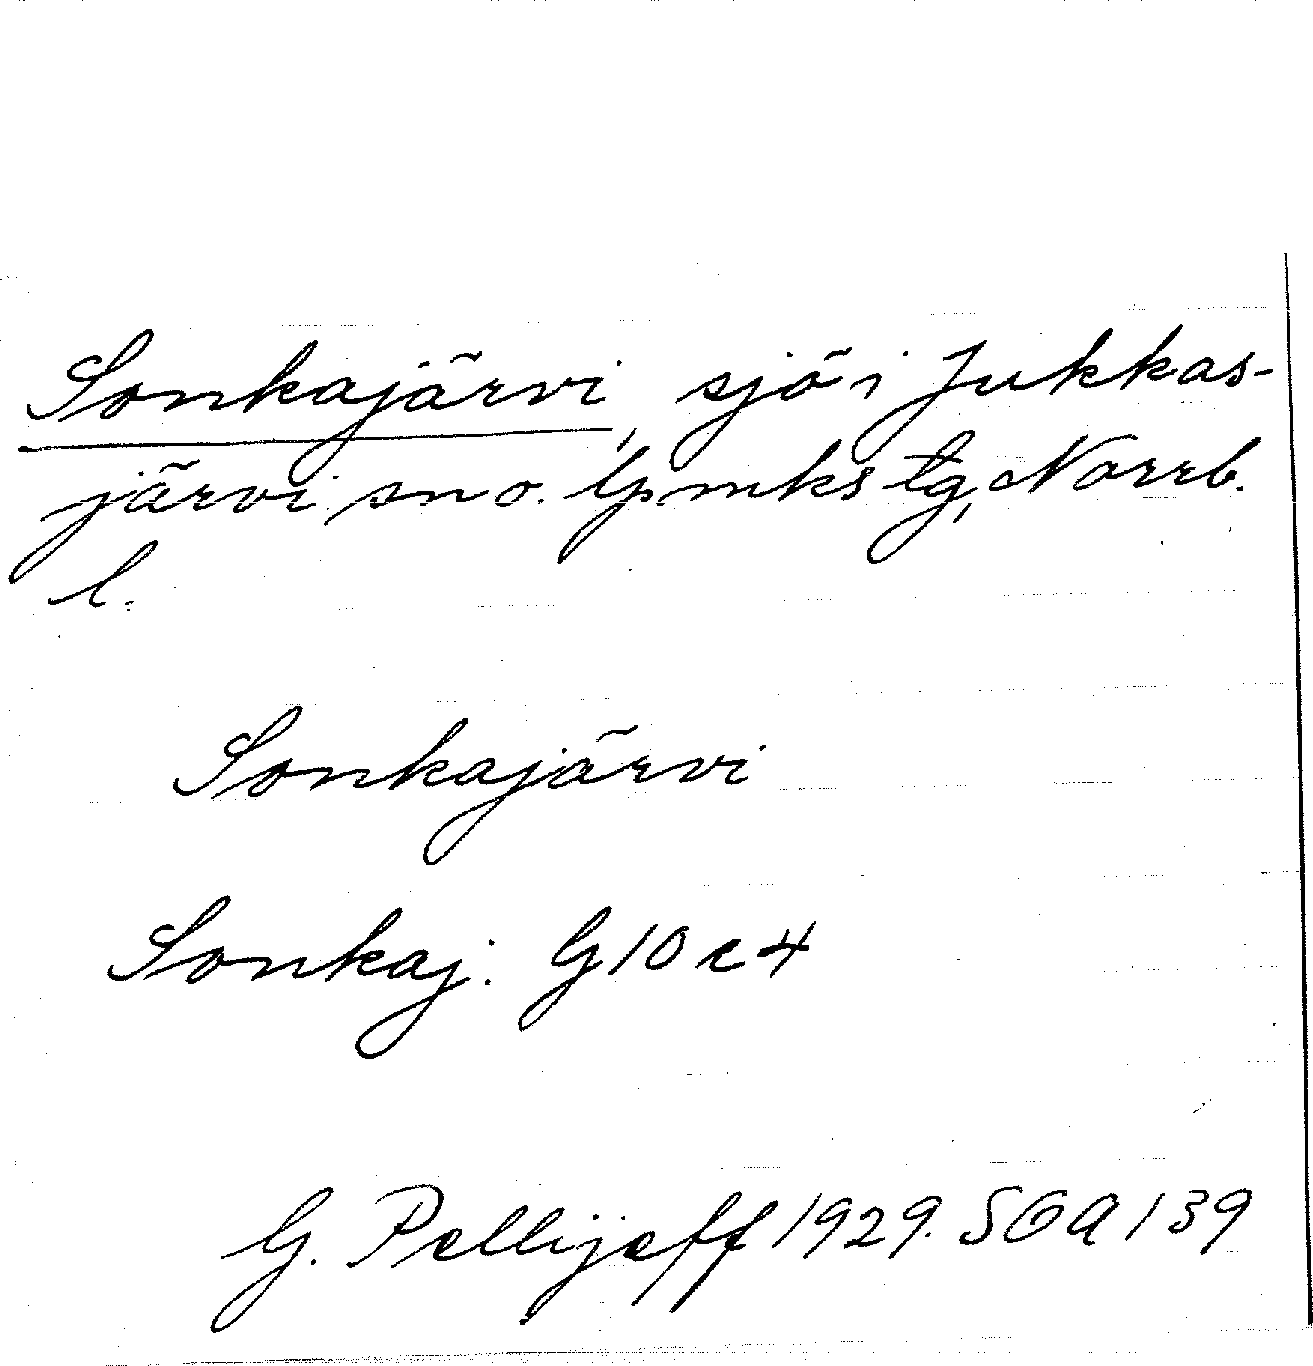 Sonkajärvi, sjö i Jukkas-
järvi sn o. lpmks tg, Norrb.
l.
Sonkajärvi
Sonkaj. G10c4
G. Pellijeff 1929. SOA 139